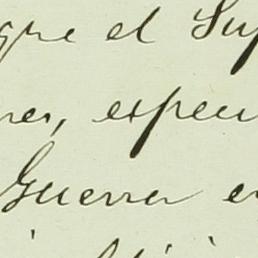 que el Sup
nes, especi
Guerra en